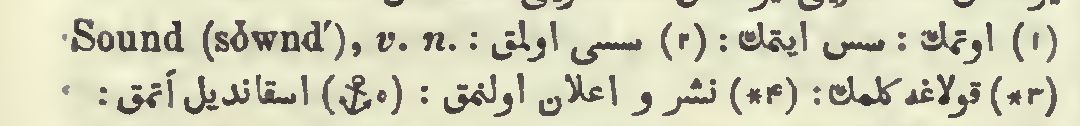 Sound (sŏwnd′), v. n. : (۱) اوتمك : سس ایتمك : (۲) سسی اولمق
(*۳) قولاغه كلمك : (*۴) نشر و اعلان اولنمق : (۵⚓) اسقاندیل آتمق :